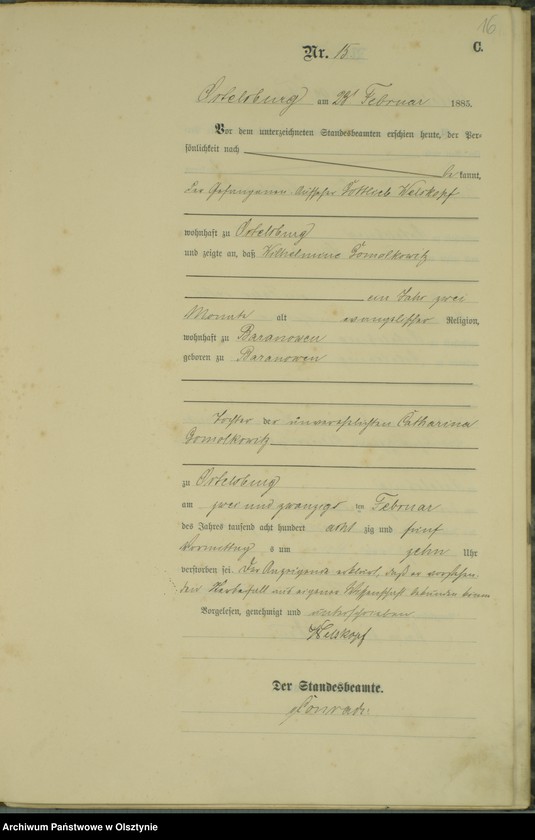 16
C.
Nr. 15
Ortelsburg am 23 Februar 1885.
Vor dem unterzeichneten Standesbeamten erschien heute, der Per-
sönlichkeit nach
be kannt,
der Gefangenen-Aufseher Gottlieb Welskopf
wohnhaft zu Ortelsburg
und zeigte an, daß Wilhelmine Gomolkowitz
ein Jahr zwei
Monate alt evangelischer Religion,
wohnhaft zu Baranowen
geboren zu Baranowen
Tochter der unverehelichten Catharina
Gomolkowitz
zu Ortelsburg
am zwei und zwanzigsten Februar
des Jahres tausend acht hundert acht zig und fünf
Vormittags um zehn Uhr
verstorben sei. Der Anzeigende erklärt, daß er vorstehen
den Sterbefall aus eigener Wissenschaft bekunden könne
Vorgelesen, genehmigt und unterschrieben
Welskopf
Der Standesbeamte.
Conrad
Archiwum Państwowe w Olsztynie